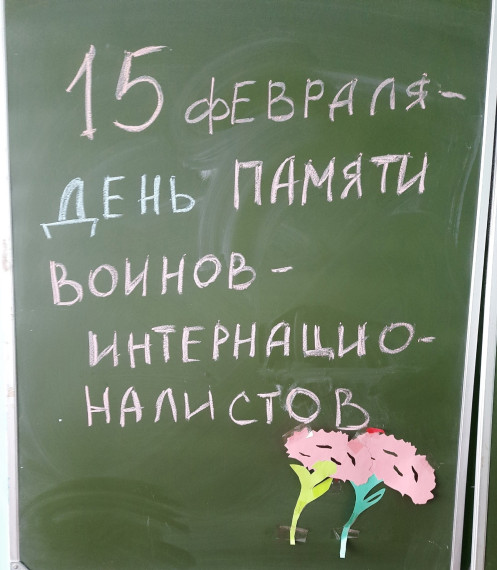 15 ФЕВРАЛЯ-
ДЕНЬ ПАМЯТИ
ВОИНОВ-
ИНТЕРНАЦИО-
НАЛИСТОВ